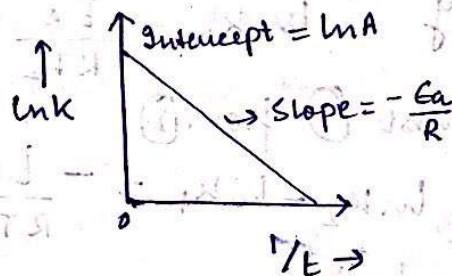 Intercept = lnA
lnK
→ Slope = -Ea/R
0
1/t →